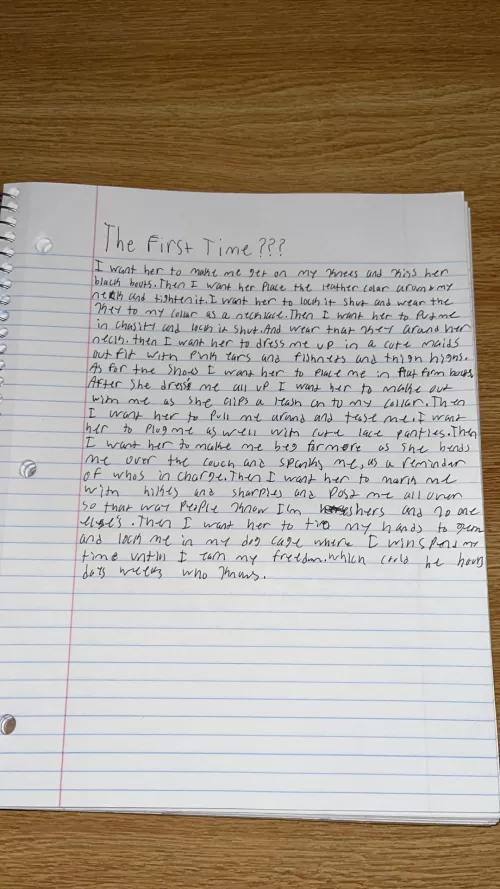 The First Time???
I want her to make me get on my knees and kiss her
black boots. Then I want her Place the leather colar around my
neck and tighten it. I want her to lock it shut and wear the
key to my colar as a necklace. Then I want her to Put me
in chasity and lock it shut. And wear that key around her
neck. then I want her to dress me up in a cute maids
outfit with Pink ears and fishnets and thigh highs.
As for the shoes I want her to Place me in flatform boots
After she dress me all up I want her to make out
with me as she clips a leash on to my collar. Then
I want her to Pull me around and tease me. I want
her to Plug me as well with cute lace panties. Then
I want her to make me beg for more as she bends
me over the couch and spanks me, as a reminder
of whos in charge. Then I want her to mark me
with hikes and sharpies and Post me all over
so that way People know I'm hers and no one
else's. Then I want her to my hands to
and lock me in my dog cage where I will spend my
time until I earn my freedom. which could be hours
days weeks who knows.